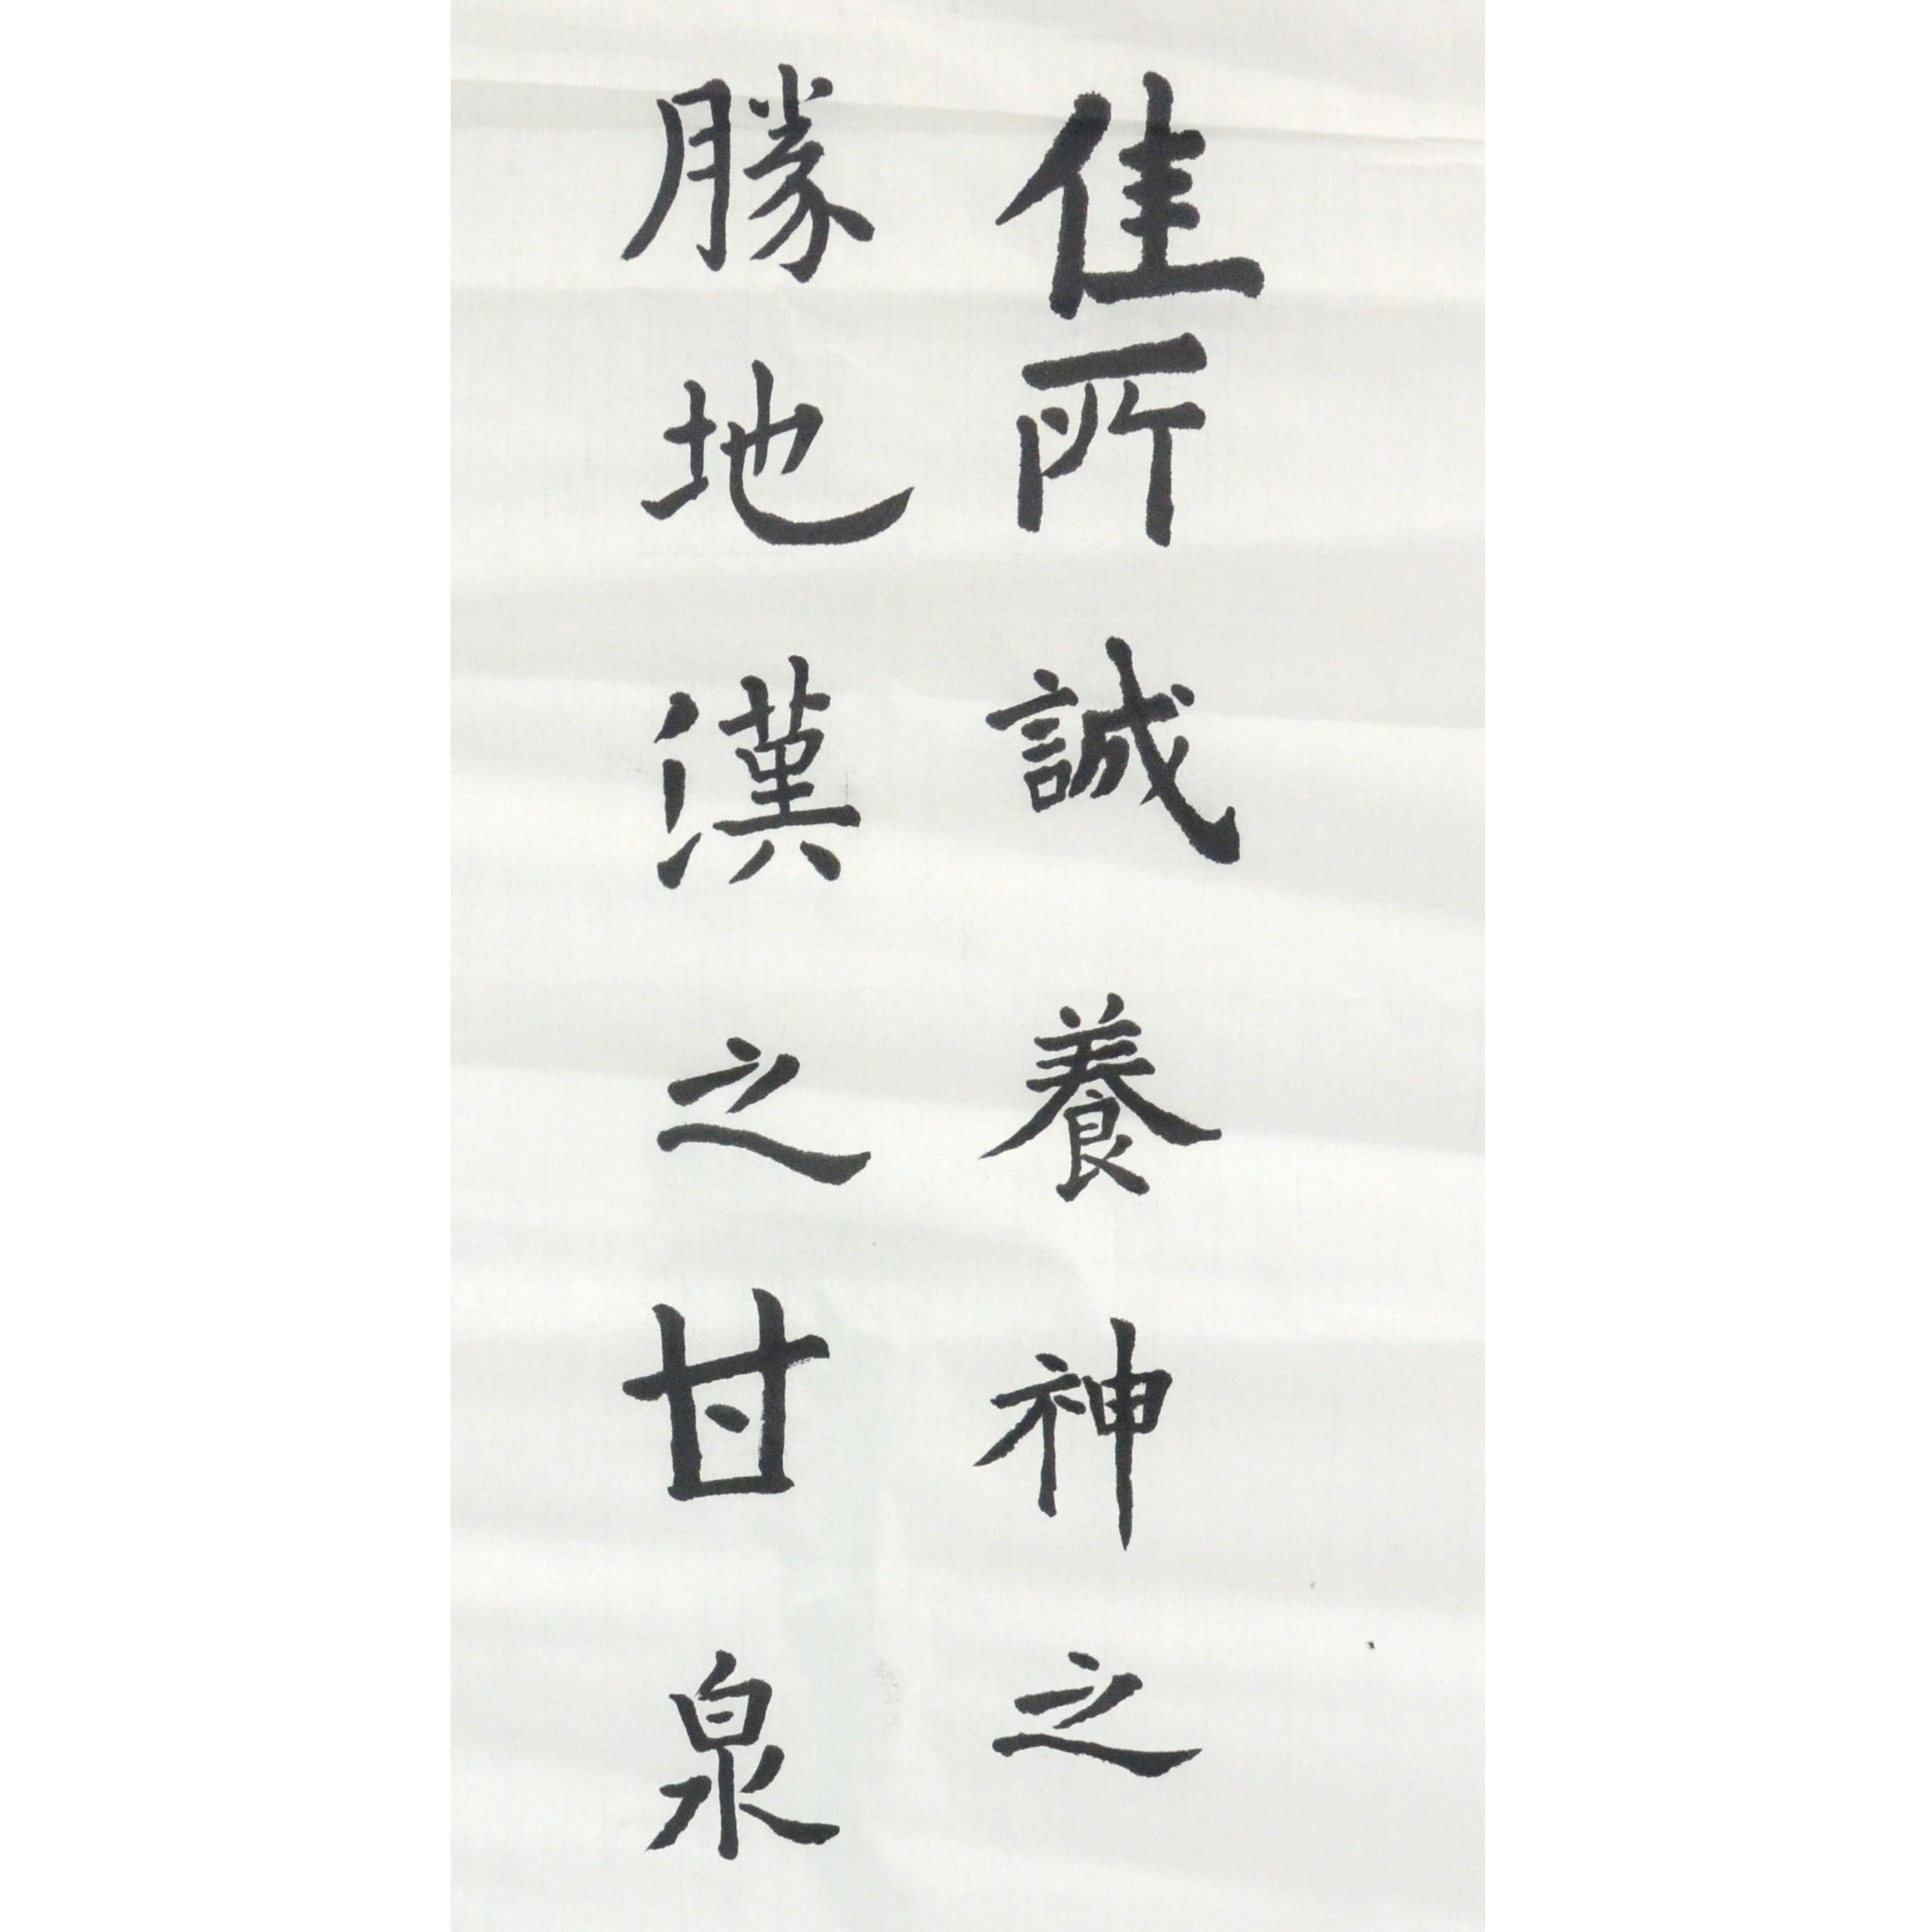 佳所誠養神之
勝地漢之甘泉